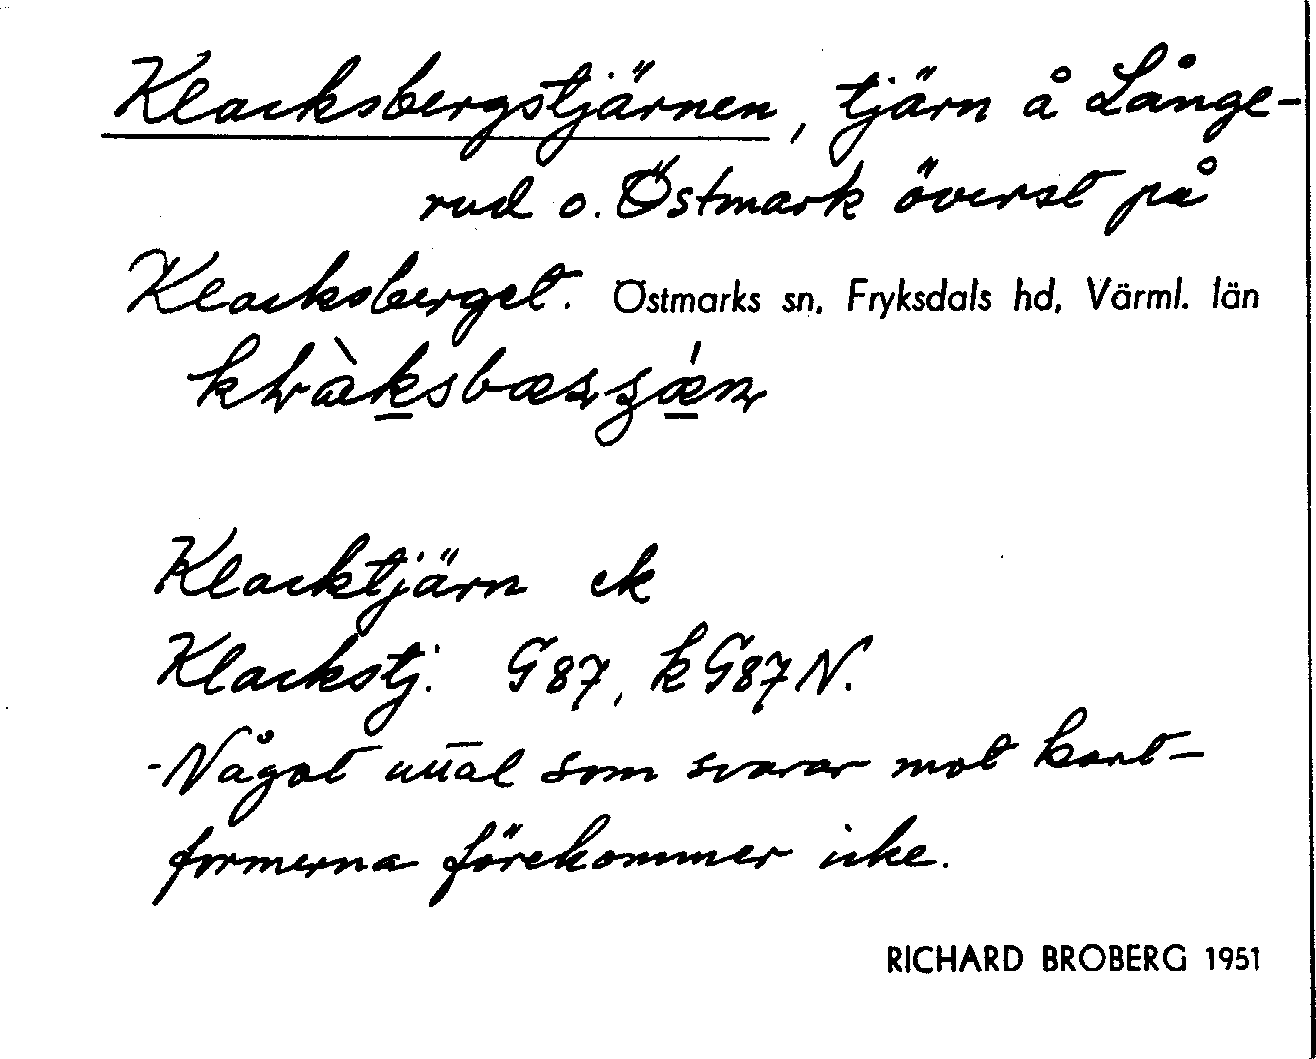 Klacksbergstjärnen, tjärn å Långe-
rud o. Östmark överst på
Klacksberget. Östmarks sn, Fryksdals hd, Värml. län
Klacktjärn ek
Klackstj. G87, kG87N.
-Något uttal som svarar mot kart-
formerna förekommer icke.
RICHARD BROBERG 1951